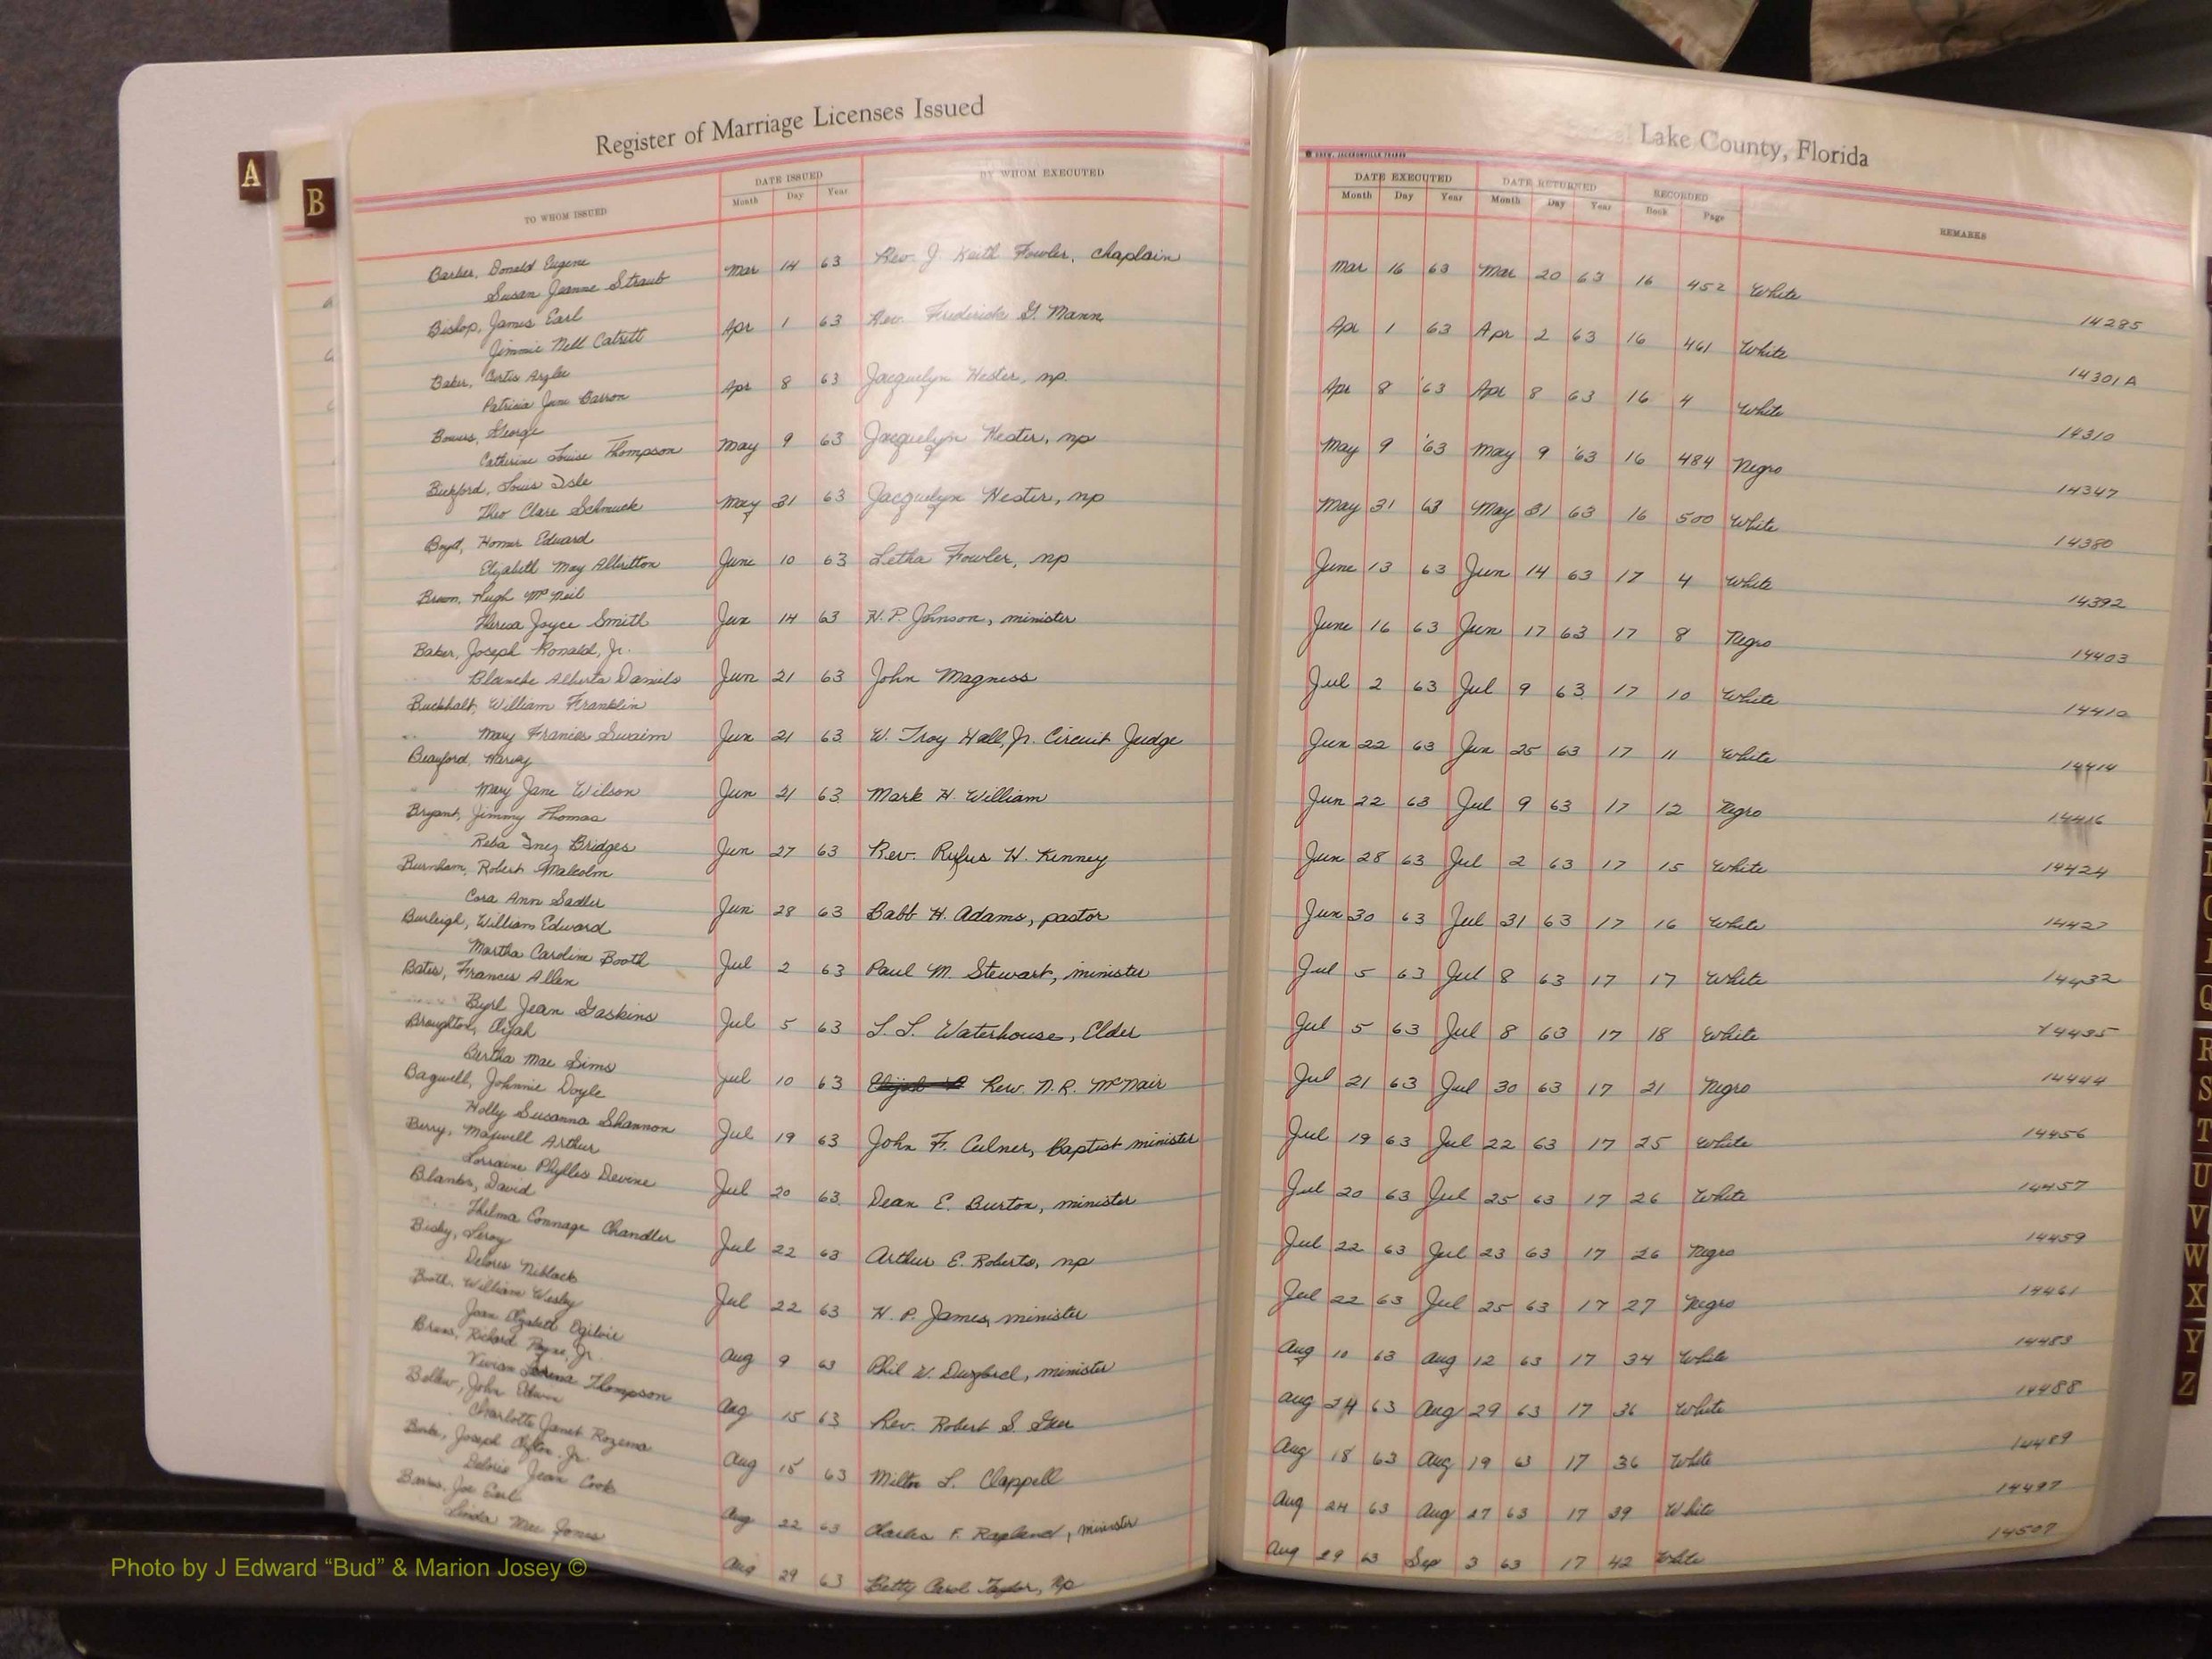 Register of Marriage Licenses Issued
Lake County, Florida
A
B
TO WHOM ISSUED
DATE ISSUED
Month Day Year
BY WHOM EXECUTED
DREW, JACKSONVILLE
DATE EXECUTED
Month Day Year
DATE RETURNED
Month Day Year
RECORDED
Book Page
REMARKS
Barker, Donald Eugene
Susan Jeanne Straub Mar 14 63 Rev. J. Keith Fowler, chaplain Mar 16 63 Mar 20 63 16 452 White 14285
Bishop, James Earl
Jimmie Nell Catrett Apr 1 63 Rev. Frederick G. Mann Apr 1 63 Apr 2 63 16 461 White 14301A
Baker, Curtis
Patricia June Barron Apr 8 63 Jacquelyn Hester, np. Apr 8 '63 Apr 8 63 16 4 White 14310
Bowers, George
Catherine Louise Thompson May 9 63 Jacquelyn Hester, np May 9 '63 May 9 '63 16 484 Negro 14347
Bickford, Louis Isle
Theo Clare Schmuck May 31 63 Jacquelyn Hester, np May 31 63 May 31 63 16 500 White 14380
Boyd, Homer Edward
Elizabeth May Albritton June 10 63 Letha Fowler, np June 13 63 Jun 14 63 17 4 White 14392
Brown, Hugh McNeil
Theresa Joyce Smith Jun 14 63 H. P. Johnson, minister June 16 63 Jun 17 63 17 8 Negro 14403
Baker, Joseph Ronald, Jr.
Blanche Alberta Daniels Jun 21 63 John Magness Jul 2 63 Jul 9 63 17 10 White 14410
Buckhalt, William Franklin
Mary Frances Swaim Jun 21 63 W. Troy Hall, Jr. Circuit Judge Jun 22 63 Jun 25 63 17 11 White 14414
Beauford, Harvey
Mary Jane Wilson Jun 21 63 Mark H. William Jun 22 63 Jul 9 63 17 12 Negro 14416
Bryant, Jimmy Thomas
Reba Inez Bridges Jun 27 63 Rev. Rufus H. Kinney Jun 28 63 Jul 2 63 17 15 White 14424
Burnham, Robert Malcolm
Cora Ann Sadler Jun 28 63 Babb H. Adams, pastor Jun 30 63 Jul 31 63 17 16 White 14427
Burleigh, William Edward
Martha Caroline Booth Jul 2 63 Paul M. Stewart, minister Jul 5 63 Jul 8 63 17 17 White 14432
Bates, Francis Allen
Byrl Jean Gaskins Jul 5 63 L. L. Waterhouse, Elder Jul 5 63 Jul 8 63 17 18 White 14435
Broughton, Elijah
Bertha Mae Sims Jul 10 63 Rev. N. R. McNair Jul 21 63 Jul 30 63 17 21 Negro 14444
Bagwell, Johnnie Doyle
Holly Susanna Shannon Jul 19 63 John F. Culner, Baptist minister Jul 19 63 Jul 22 63 17 25 White 14456
Berry, Maxwell Arthur
Lorraine Phyllis Devine Jul 20 63 Dean E. Burton, minister Jul 20 63 Jul 25 63 17 26 White 14457
Blanks, David
Thelma Connage Chandler Jul 22 63 Arthur E. Roberts, np Jul 22 63 Jul 23 63 17 26 Negro 14459
Bisby, Leroy
Delores Niblack Jul 22 63 H. P. James, minister Jul 22 63 Jul 25 63 17 27 Negro 14461
Booth, William Wesley
Joan Elizabeth Ogilvie Aug 9 63 Phil W. minister Aug 10 63 Aug 12 63 17 34 White 14483
Richard Payne, Jr.
Vivian Thompson Aug 15 63 Rev. Robert S. Aug 24 63 Aug 29 63 17 36 White 14488
Bellew, John Edwin
Charlotte Janet Rozema Aug 15 63 Milton L. Clappell Aug 18 63 Aug 19 63 17 36 White 14489
Joseph Jr.
Deloris Jean Cook Aug 22 63 Charles F. minister Aug 24 63 Aug 27 63 17 39 White 14497
Joe Earl
Linda Mae Jones Aug 29 63 Betty Carol Taylor, np Aug 29 63 Sep 3 63 17 42 White 14507
Q
R
S
T
U
V
W
X
Y
Z
Photo by J Edward “Bud” & Marion Josey ©